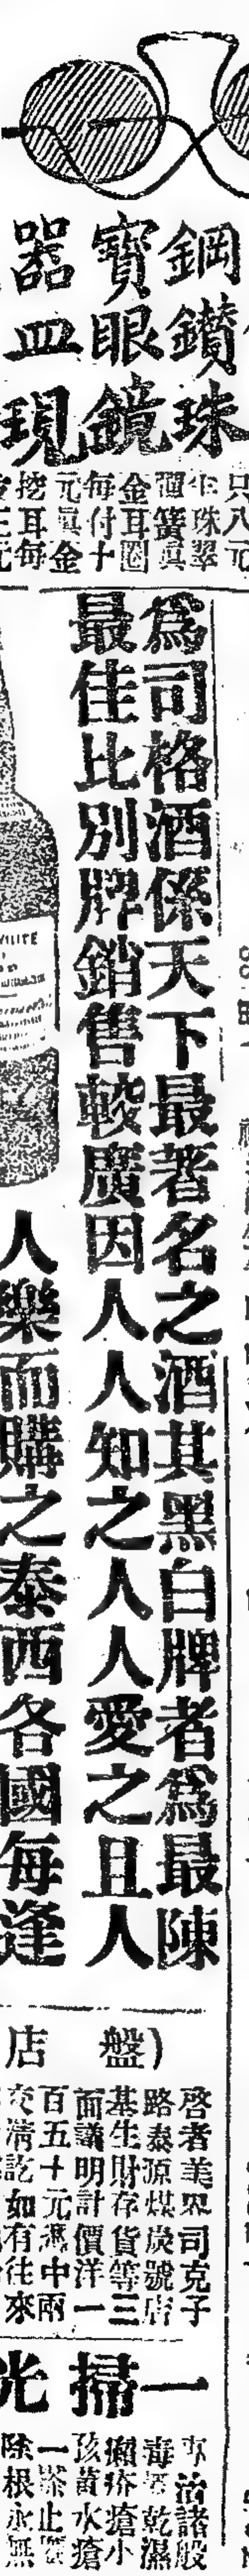 鋼鑽珠
寶眼鏡
器皿現
只八元
生珠翠
彈簧眞
金耳圈
每付十
元眞金
挖耳每
爲司格酒係天下最著名之酒其黑白牌者爲最陳
最佳比別牌銷售較廣因人人知之人人愛之且人
人樂而購之泰西各國每逢
盤)
店
啓者美界司克子
路泰源煤炭號店
基生財存貨等三
面議明計價洋一
百五十元憑中兩
交淸訖如有往來
一掃光
專治諸般
毒瘡乾濕
癩疥瘡小
孩黃水瘡
一擦止癢
除根永無